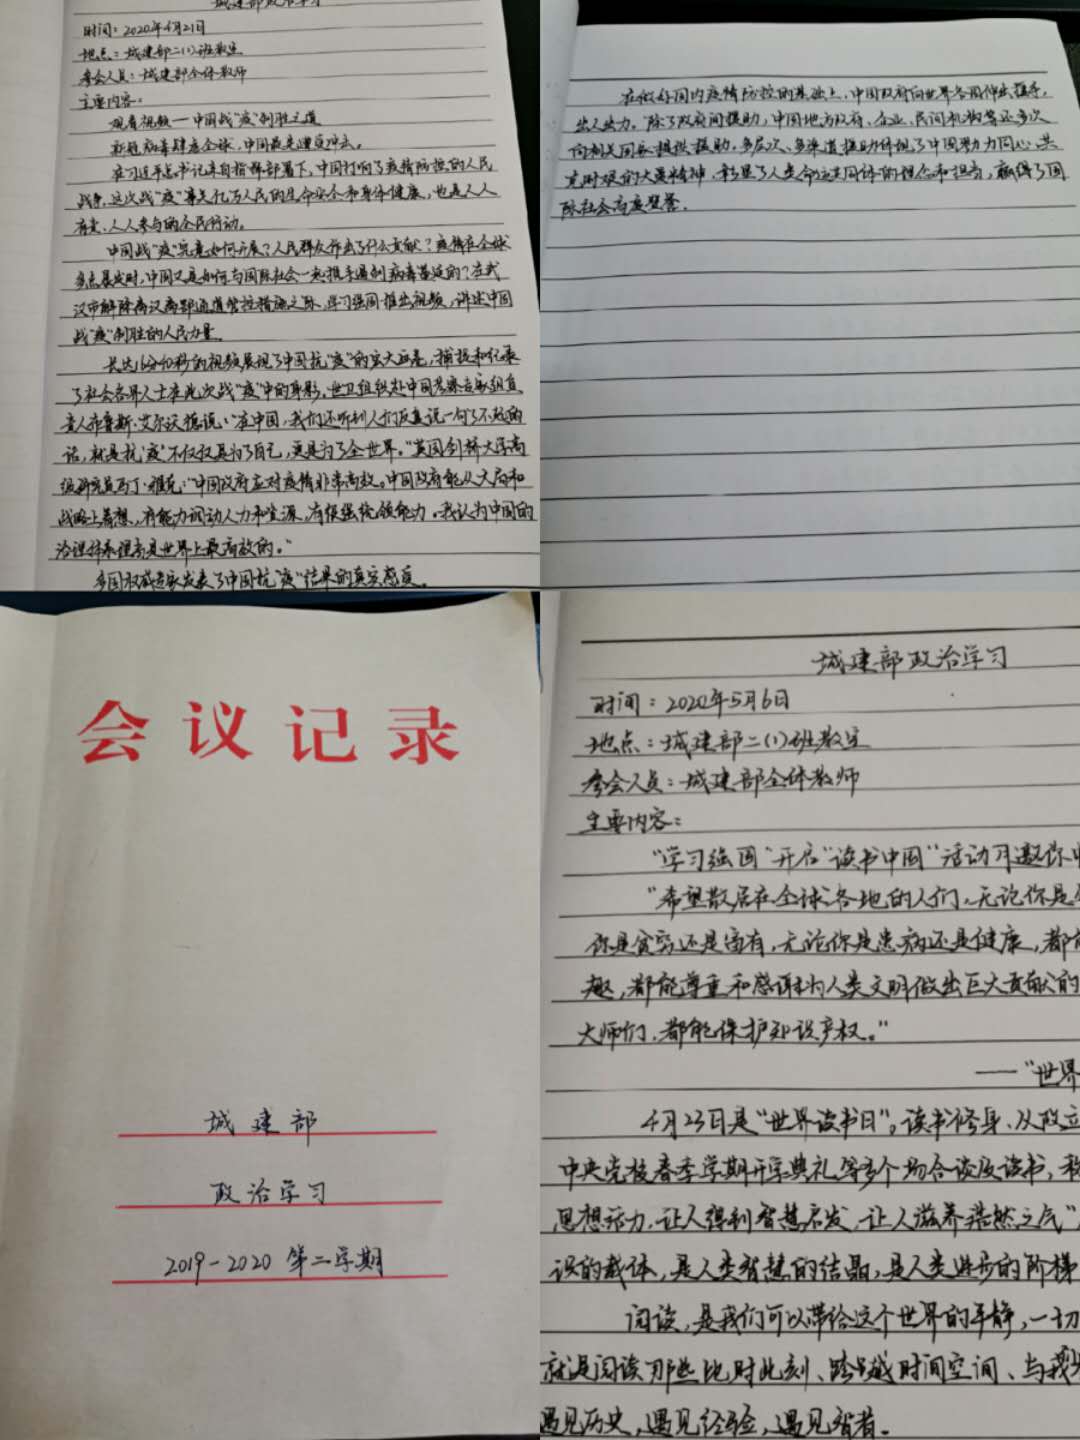 城建部政治学习
时间：2020年4月21日
地点：城建部二(1)班教室
参会人员：城建部全体教师
主要内容：
观看视频—中国战“疫”制胜之道
新冠病毒肆虐全球，中国最先遭受冲击。
在习近平总书记亲自指挥部署下，中国打响了疫情防控的人民
战争，这次战“疫”事关亿万人民的生命安全和身体健康，也是人人
有责、人人参与的全民行动。
中国战“疫”究竟如何开展？人民群众作出了什么贡献？疫情在全球
多点暴发时，中国又是如何与国际社会一起携手遏制病毒蔓延的？在武
汉市解除离汉离鄂通道管控措施之际，学习强国推出视频，讲述中国
战“疫”制胜的人民力量。
长达16分40秒的视频展现了中国抗“疫”的宏大画卷，捕捉和记录
了社会各界人士在此次战“疫”中的身影。世卫组织赴中国考察专家组负
责人布鲁斯·艾尔沃德说：“在中国，我们还听到人们反复说一句了不起的
话，就是抗“疫”不仅仅是为了自己，更是为了全世界。”英国剑桥大学高
级研究员马丁·雅克：“中国政府应对疫情非常高效。中国政府能从大局和
战略上着想，有能力调动人力和资源，有很强统领能力。我认为中国的
治理体系理当是世界上最高效的。”
多国权威专家发表了中国抗“疫”结果的真实感受。
在做好国内疫情防控的基础上，中国政府向世界各国伸出援手，
出人出力。除了政府间援助，中国地方政府、企业、民间机构等还多次
向相关国家提供援助，多层次、多渠道援助体现了中国努力同心、共
克时艰的大爱精神，彰显了人类命运共同体的理念和担当，赢得了国
际社会高度赞誉。
会议记录
城建部
政治学习
2019-2020 第二学期
城建部政治学习
时间：2020年5月6日
地点：城建部二(1)班教室
参会人员：城建部全体教师
主要内容：
“学习强国”开启“读书中国”活动月邀你
“希望散居在全球各地的人们，无论你是
你是贫穷还是富有，无论你是患病还是健康，都
趣，都能尊重和感谢为人类文明做出巨大贡献的
大师们，都能保护知识产权。”
——“世界
4月23日是“世界读书日”。读书修身、从政立
中央党校春季学期开学典礼等多个场合谈及读书，称
思想活力，让人得到智慧启发，让人滋养浩然之气”
识的载体，是人类智慧的结晶，是人类进步的阶梯
阅读，是我们可以带给这个世界的平静，一切
就是阅读那些比时此刻、跨越时间空间、与我
遇见历史，遇见经验，遇见智者。